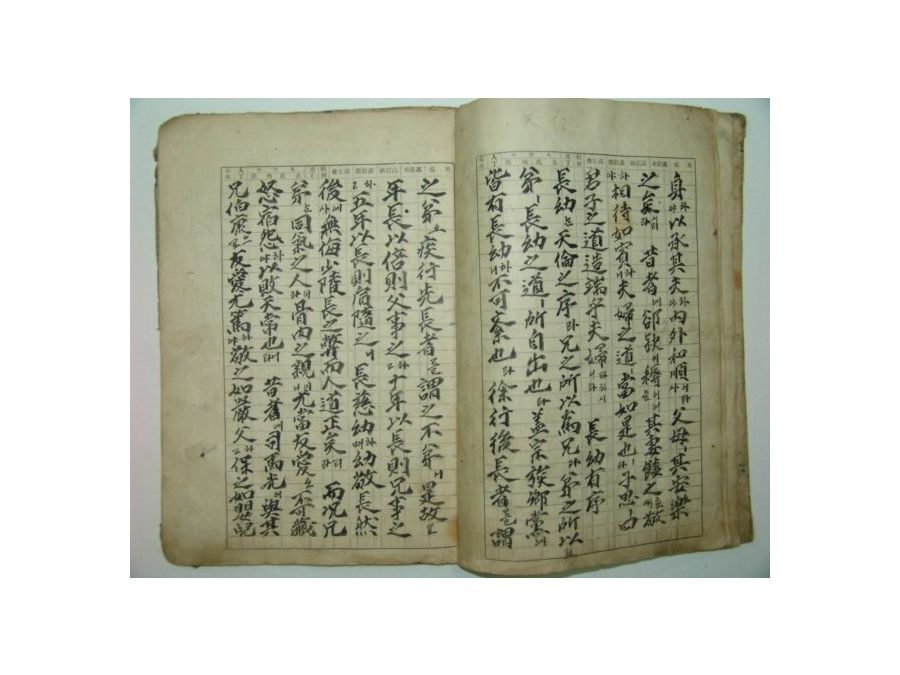 貞以承其夫하야內外和順이라사父母其安樂
之矣리라昔者에郤缺이耨其妻饁之敬
하야相待如賓하니夫婦之道當如是也라子思曰
君子之道造端乎夫婦라하시니라長幼有序
長幼는天倫之序라兄之所以爲兄과弟之所以
爲弟長幼之道所自出也라盖宗族鄕黨에
皆有長幼하니不可紊也라徐行後長者를謂
之弟오疾行先長者를謂之不弟니是故로
年長以倍則父事之하고十年以長則兄事之
하고五年以長則肩隨之니長慈幼하며幼敬長然
後에사無侮少陵長之弊而人道正矣리라而况兄
弟는同氣之人이라骨肉之親이니尤當友愛오不可藏
怒宿怨하야以敗天常也니라昔者에司馬光이與其
兄伯康으로友愛尤篤하야敬之如嚴父하고保之如嬰兒